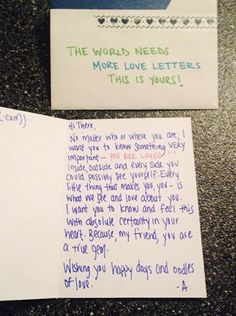 THE WORLD NEEDS
MORE LOVE LETTERS
THIS IS YOURS!
.com))
Hi There,
No matter who or where you are, I
want you to know something VERY
important - YOU ARE LOVED!!!
Inside, outside and every side you
could possibly see yourself. Every
little thing that makes you, you - is
what we see and love about you.
I want you to know and feel this
with absolute certainty in your
heart. Because, my friend, you are
a true gem.
Wishing you happy days and oodles
of love.
-A